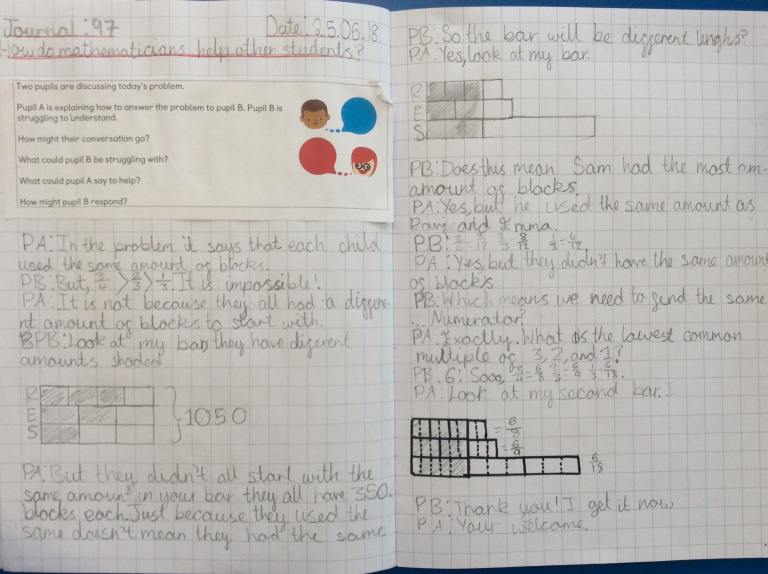 Journal: 97
Date. 25.06.18
How do mathematicians help other students?
Two pupils are discussing today's problem.
Pupil A is explaining how to answer the problem to pupil B. Pupil B is
struggling to understand.
How might their conversation go?
What could pupil B be struggling with?
What could pupil A say to help?
How might pupil B respond?
PA: In the problem it says that each child
used the same amount of blocks.
PB. But, 3/4 > 2/3 > 1/3. It is impossible!
PA: It is not because they all had a differe-
nt amount of blocks to start with.
PB: Look at my bar, they have diferent
amounts shaded
R
E
S
1050
PA: But they didn't all start with the
same amount, in your bar they all have 350
blocks each. Just because they used the
same doesn't mean they had the same
PB: So the bar will be different lenghs?
PA: Yes, look at my bar.
R
E
S
PB: Does this mean Sam had the most am-
amount of blocks.
PA: Yes, but he used the same amount as
Ravi and Emma.
PB: 8/12 1/3 = 4/12
PA: Yes, but they didn't have the same amount
of blocks
PB: Which means we need to find the same
... Numerator?
PA. Exactly. What is the lowest common
multiple of 3, 2, and 1?
PB. 6! Sooo, 3/4 = 6/8 2/3 = 6/9 1/3 = 6/18.
PA: Look at my second bar.
= 6/8
= 6/9
6/18
PB: Thank you! I get it now
PA: Your welcome.